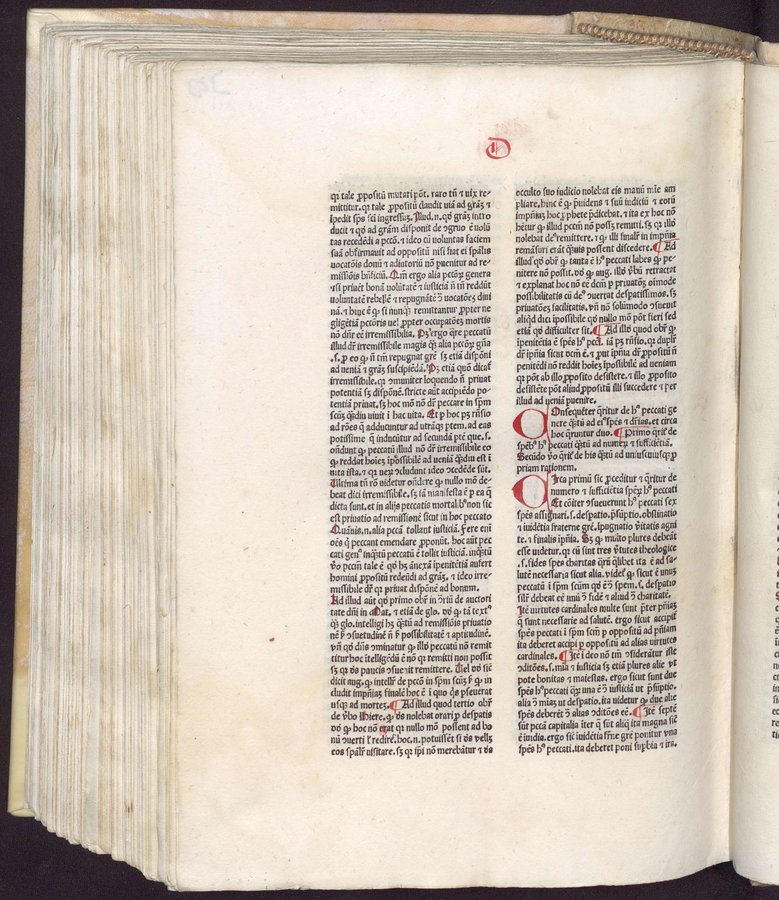 D
qr tale ꝓpositũ mutari põt. raro tñ ⁊ uix re
mittitur. qr tale ꝓpositũ claudit uiã ad grãʒ ⁊
īpedit sp̃s sc̃i ingressuʒ. Illud .n. qđ grãʒ intro
ducit ⁊ qđ ad grãm disponit ẽ ꝯgruo ẽ uolũ
tas recedẽdi a pctõ. ⁊ ideo cũ uoluntas faciem
suã obfirmauit ad oppositũ nisi fiat ei sp̃alis
uocatõis donũ ⁊ adiutoriũ nõ puenitur ad re-
missiõis bñficiũ. Qm̃ ergo alia pctõʒ genera
⁊ si priuẽt bonã uolũtatẽ ⁊ iusticiã nõ tñ reddũt
uoluntatẽ rebellẽ ⁊ repugnãtẽ ꝯ uocatõeʒ diui
nã. ⁊ hinc ẽ ꝙ si nunqʒ remittantur ꝓpter ne
gligẽtiã pctõris uel ꝓpter occupatõeʒ mortis
nõ dñr eẽ irremissibilia. Pʒ ergo qře peccatũ
illud dr̃ irremissibile magis qʒ alia pctõʒ gña
.s. ꝓ eo ꝙ nõ tm̃ repugnat grẽ sʒ etiã dispõni
ad ueniã ⁊ grãʒ suscipiẽdã. Pʒ etiã quõ dicat̃
irremissibile. qr ꝯmuniter loquendo nõ priuat
potentiã sʒ dispõnẽ. stricte aũt accipiẽdo po-
tentiã priuat. sʒ hoc mõ nõ dr̃ peccare in sp̃m
scũʒ qʒdiu uiuit ī hac uita. Et ꝑ hoc pʒ rñsio
ad rões q̃ adducuntur ad utrãqʒ ptem. ad eas
potissime q̃ inducũtur ad secundã ptẽ que .s.
oñdunt ꝙ peccatũ illud nõ dr̃ irremissibile eo
ꝙ reddat hoĩeʒ īpossibilẽ ad ueniã qʒdiu est ī
uita ista. ⁊ qr uerʒ ꝯcludunt ideo ꝯcedẽde sũt.
Ultima tñ rõ videtur oñdere ꝙ nullo mõ de-
beat dici irremissibile. sʒ iam manifesta ẽ ꝑ ea q̃
dicta sunt. et in alijs peccatis mortalibus nõ sic
est priuatio ad remissionẽ sicut in hoc peccato
Quãuis .n. alia pctã tollant iusticiã. fere eni
oẽs q̃ peccant emendare ꝓponũt. hoc aũt pec
cati genus inqʒtũ peccatũ ẽ tollit iusticiã. inqʒtũ
v̊o pctm̃ tale ẽ qđ hʒ anexã īpenitẽtiã aufert
homini ꝓpositũ redeũdi ad grãʒ. ⁊ ideo irre-
missibile dr̃ qr priuat dispõnẽ ad bonum.
Ad illud aũt qđ primo obr̃ in ꝯriũ de auctori
tate dñi in Mat. ⁊ etiã de glo. võ ꝙ tã textus
qʒ glo. intelligi hʒ qʒtũ ad remissiõis priuatio
nẽ ꝑ ꝯsuetudinẽ nõ ꝑ possibilitatẽ ⁊ aptitudinẽ.
vñ qđ dñs ꝯminatur ꝙ illđ peccatũ nõ remit
titur hoc ītelligẽdũ ẽ nõ qr remitti non possit
sʒ qr vʒ paucis ꝯsueuit remittere. Uel vʒ sic̃
dicit aug. ꝙ intellr̃ de pctõ in sp̃m scũʒ ꝑ ꝙ in
cludit impñiaʒ finalẽ hoc ẽ ī quo qs ꝑseuerat
usqʒ ad mortez. ¶ Ad illud quod tertio obr̃
de v̊bo Hiere. ꝙ dñs nolebat orari ꝓ despatis
vʒ ꝙ hoc nõ erat qr nullo mõ possent ad bo
nũ ꝯuerti ꝉ redire. hoc .n. potuisset si dñs vellʒ
eos sp̃alr̃ uisitare. sʒ qr ip̃i nõ merebãtur ⁊ dñs
occulto suo iudicio nolebat eis manũ mĩe am
pliare. hinc ẽ ꝙ puidens ⁊ suũ iudiciũ ⁊ eorũ
impñiaʒ hoc ꝓphete p̃dicebat. ⁊ ita ex hoc nõ
hẽtur ꝙ illud pctm̃ nõ possʒ remitti. sʒ qr illđ
nolebat dẽ remittere. ⁊ ꝙ illi finalr̃ in impñia
remãsuri erãt quis possent discedere. ¶ Ad
illud qđ obr̃ ꝙ tanta ẽ hus peccati labes ꝙ pe-
nitere nõ possit. vʒ ꝙ aug. illđ v̊bũ retractat
⁊ explanat hoc nõ eẽ dcm̃ ꝑ priuatõeʒ oĩmode
possibilitatis cũ deus ꝯuertat despatissimos. sʒ
priuatõeʒ facilitatis. vñ nõ solũmodo ꝯsueuit
aliqđ dici īpossibile qđ nullo mõ põt fieri sed
etiã qđ difficulter sit. ¶ Ad illđ quod obr̃ ꝙ
īpenitẽtia ẽ spẽs hus pecti. iã pʒ rñsio. qr duplr̃
dr̃ īpñia sicut dcm̃ ẽ. ⁊ put īpñia dr̃ ꝓpositũ nõ
penitẽdi nõ reddit hoĩeʒ īpossibilẽ ad ueniam
qr põt ab illo ꝓposito desistere. ⁊ illo ꝓposito
desistẽte põt aliud ꝓpositũ illi succedere ⁊ ꝑ ter
illud ad ueniã puenire.
COnsequẽter qritur de hus peccati ge
nere qʒtũ ad eius spẽs ⁊ dr̃ias. et circa
hoc qruntur duo. ¶ Primo qrit̃ de
spẽbus hus peccati qʒtũ ad numeʒ ⁊ sufficiẽtiã.
Secũdo v̊o qrit̃ de his qʒtũ ad uniuscuiusqʒ ꝓ
priam rationem.
CIrca primũ sic ꝓceditur ⁊ qritur de
numero ⁊ sufficiẽtia spẽʒ hus peccati
Et cõiter ꝯsueuerunt hus peccati sex
spẽs assignari. s. despatio. p̃suptio. obstinatio
⁊ inuidẽtia fraterne grẽ. īpugnatio v̊itatis agni
te. ⁊ finalis īpñia. Sʒ ꝙ multo plures debeãt
esse uidetur. qr cũ sint tres v̊tutes theologice
.s. fides spes charitas qrũ qlibet ita ẽ ad sa-
lutẽ necessaria sicut alia. videt̃ ꝙ sicut ẽ unuʒ
peccatũ ī sp̃m scũʒ qđ ẽ ꝯ spem. s. despatio
silr̃ debeat eẽ unũ ꝯ fidẽ ⁊ aliud ꝯ charitatẽ.
Itẽ uirtutes cardinales multe sunt p̃ter pñiaʒ
q̃ sunt necessarie ad salutẽ. ergo sicut accipit̃
spẽs peccati ī sp̃m scm̃ ꝑ oppositũ ad pñiam
ita deberet accipi ꝑ oppositũ ad alias uirtutes
cardinales. ¶ Itẽ ī deo nõ tm̃ ꝯsiderãtur iste
ꝯditões. s. mĩa ⁊ iusticia sʒ etiã plures alie vt
pote bonitas ⁊ maiestas. ergo sicut sunt due
spẽs hus peccati qrʒ una ẽ ꝯ iusticiã ut p̃suptio.
alia ꝯ mĩaʒ ut despatio. ita uidetur ꝙ due alie
spẽs deberẽt ꝯ alias ꝯditões eẽ. ¶ Itẽ septẽ
sũt pctã capitalia īter q̃ sũt aliq̃ ita magna sic̃
ẽ īuidia. ergo sic̃ īuidẽtia fr̃ne grẽ ponitur vna
spẽs hus peccati. ita deberet poni supbia ⁊ ira.